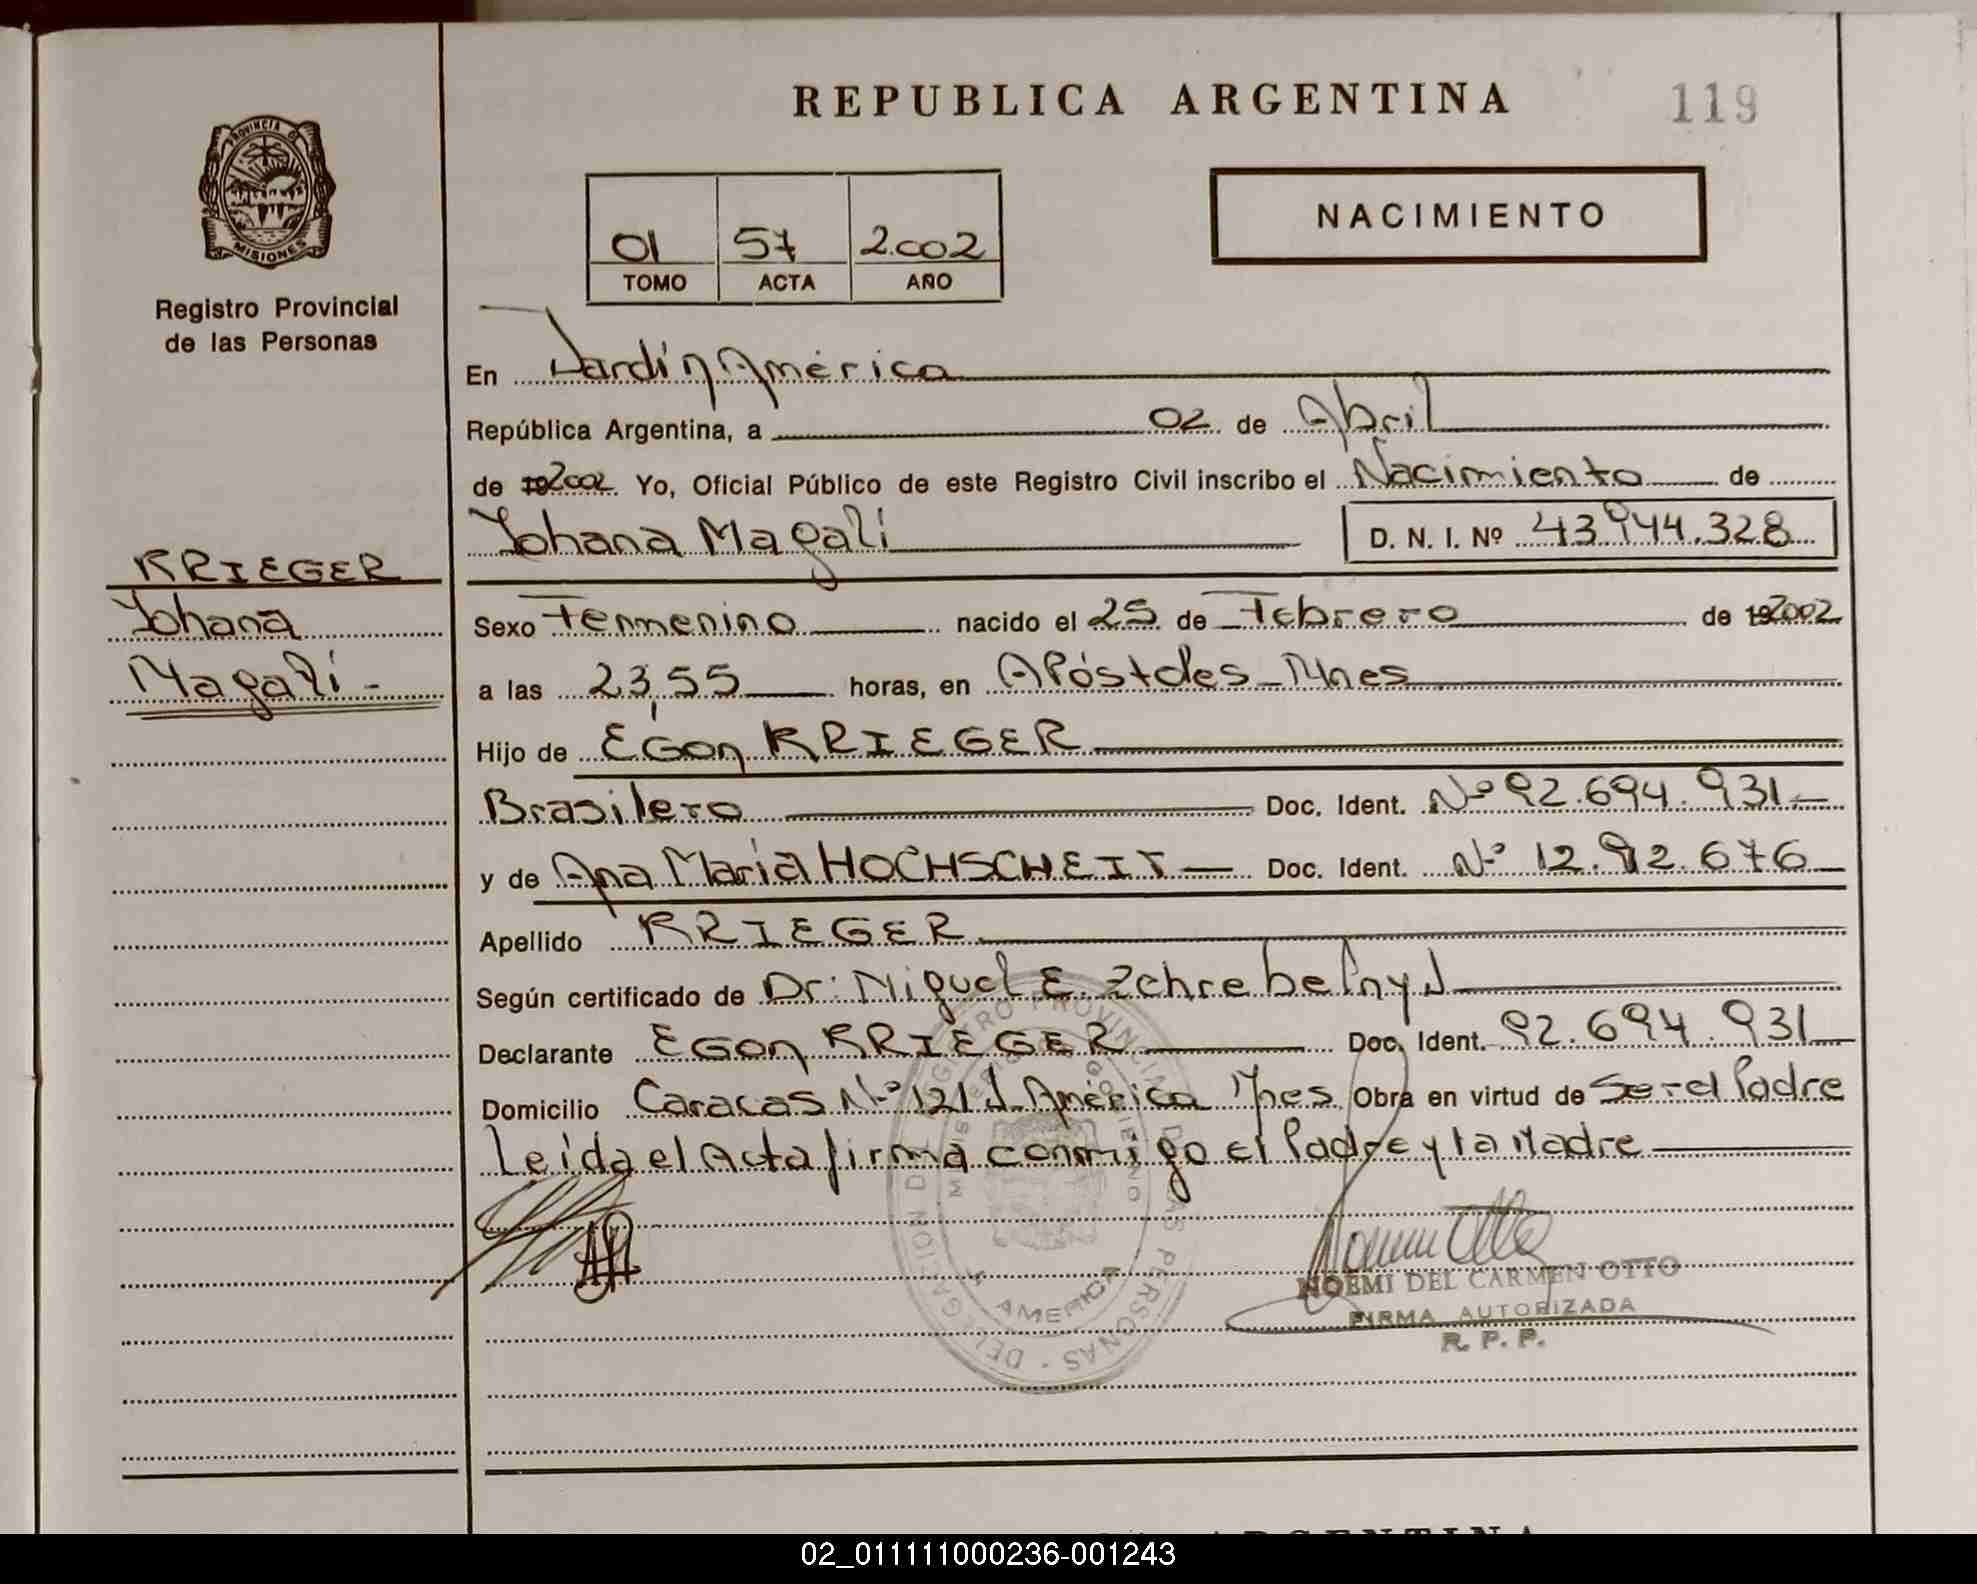 REPUBLICA ARGENTINA
119
PROVINCIA DE MISIONES
Registro Provincial
de las Personas
01 57 2.002
TOMO ACTA AÑO
NACIMIENTO
En Jardín América
República Argentina, a 02 de Abril
de 2002 Yo, Oficial Público de este Registro Civil inscribo el Nacimiento de
Yohana Magali D. N. I. Nº 43.944.328
KRIEGER
Yohana
Magali -
Sexo Femenino nacido el 25 de Febrero de 2002
a las 23,55 horas, en Apóstoles - Mnes
Hijo de Egon KRIEGER
Brasilero Doc. Ident. Nº 92.694.931
y de Ana Maria HOCHSCHEIT Doc. Ident. Nº 12.912.676
Apellido KRIEGER
Según certificado de Dr: Miguel E.
Declarante Egon KRIEGER Doc. Ident. 92.694.931
Domicilio Caracas Nº 121 J. América Mnes Obra en virtud de Ser el Padre
Leida el Acta firma conmigo el Padre y la Madre
DELEGACION DEL REGISTRO PROVINCIAL DE LAS PERSONAS
MINISTERIO DE GOBIERNO
J. AMERICA
NOEMI DEL CARMEN OTTO
FIRMA AUTORIZADA
R. P. P.
ARGENTINA
02_011111000236-001243